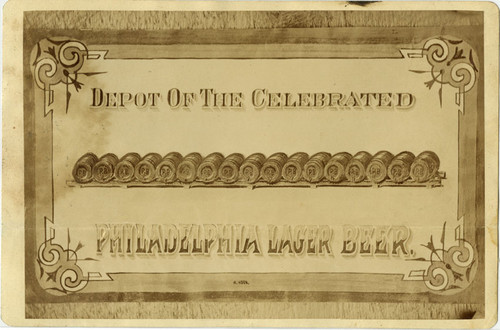 DEPOT OF THE CELEBRATED
PHILADELPHIA LAGER BEER.